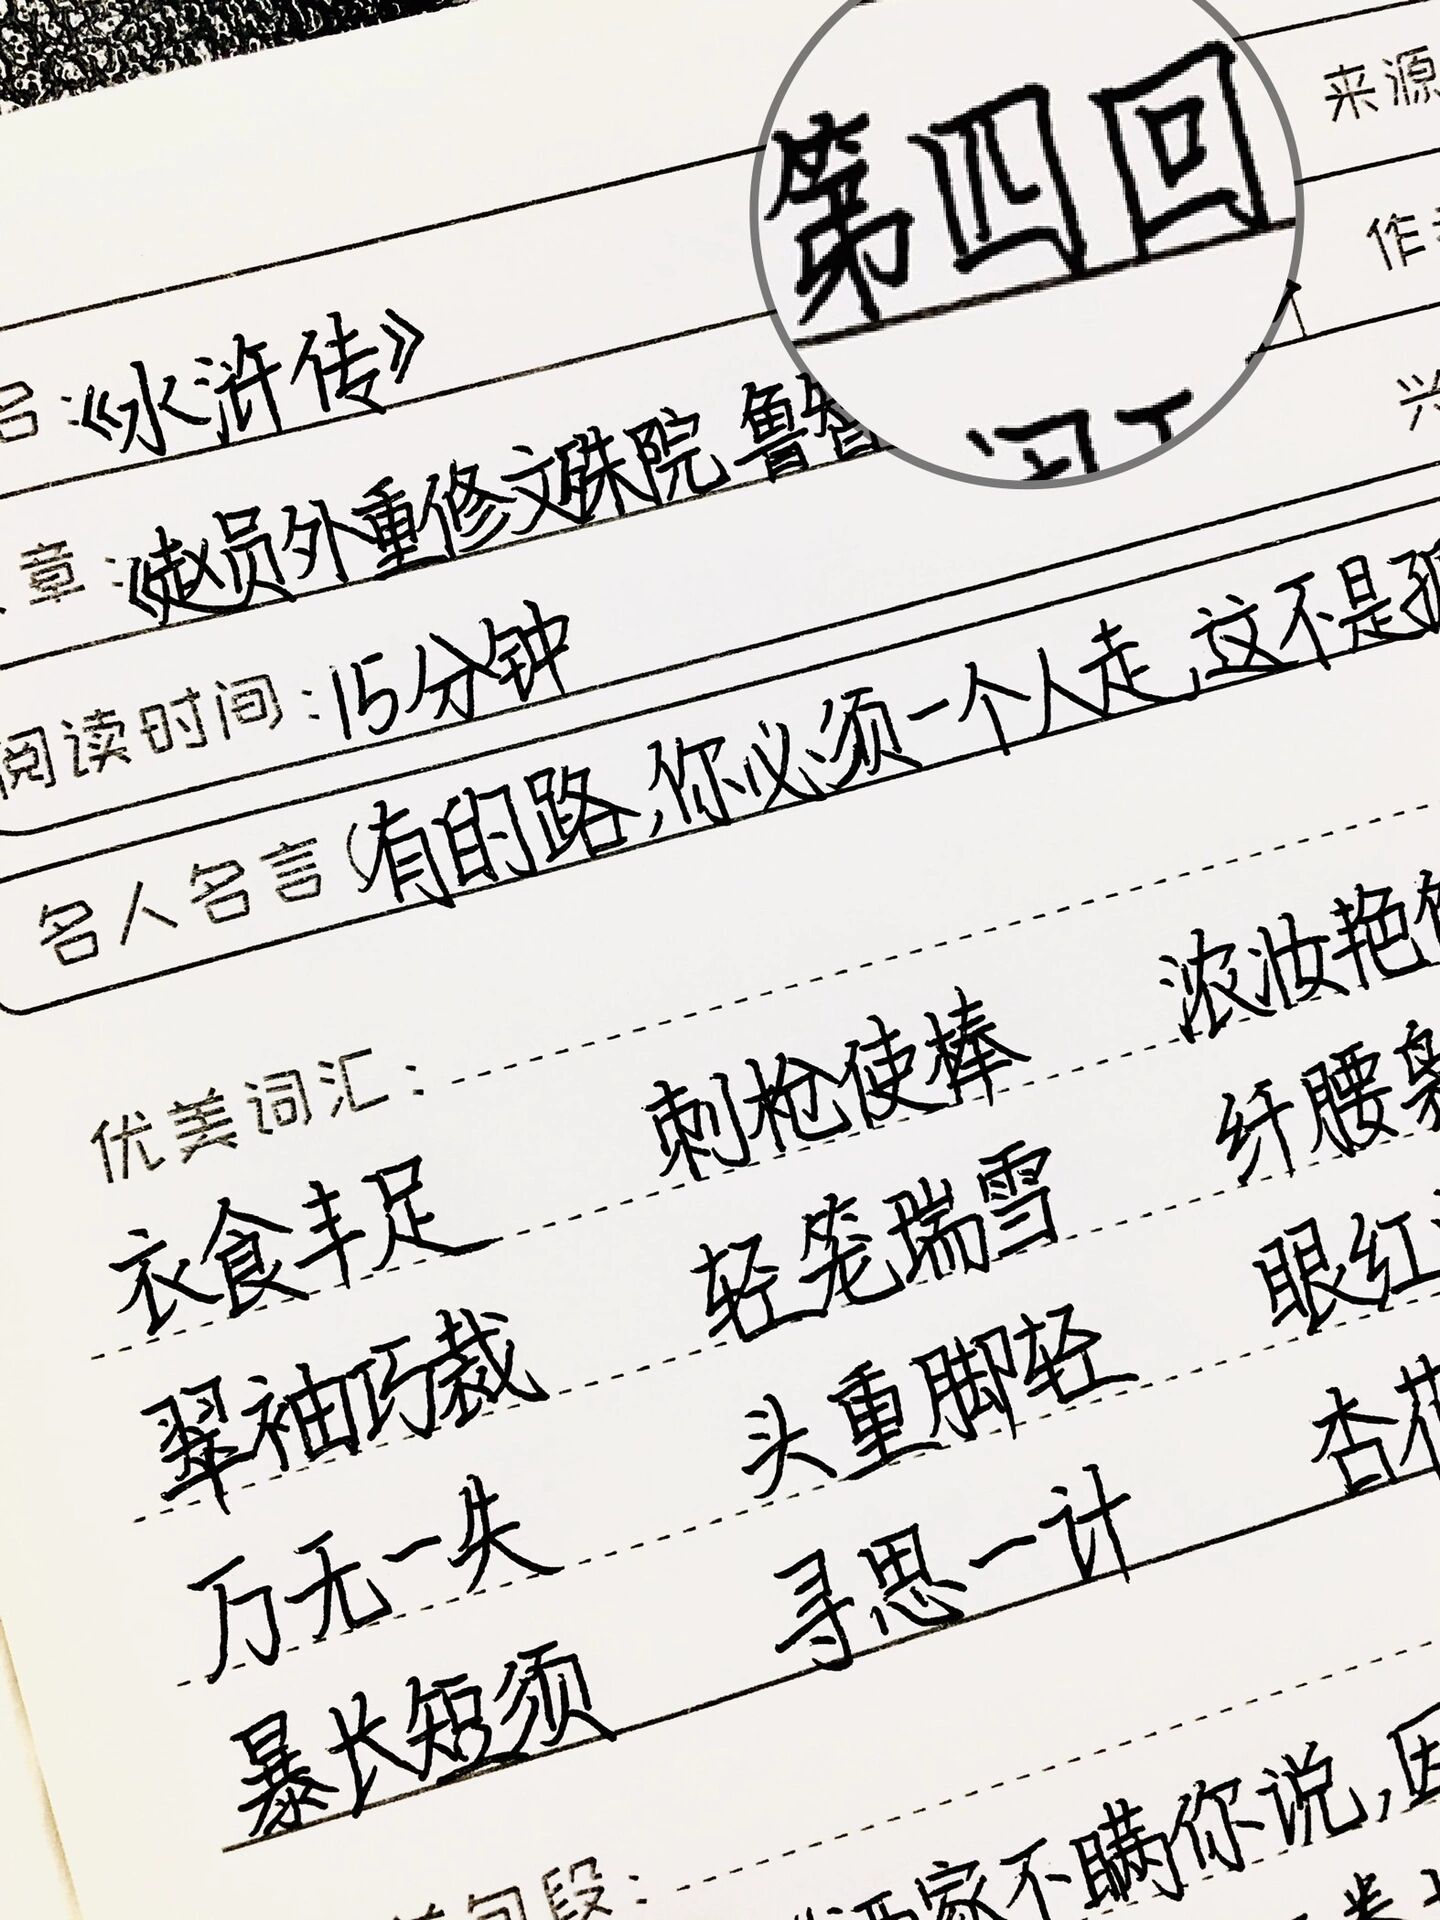 第四回
来源
作
名:《水浒传》
兴
章:《赵员外重修文殊院 鲁智
阅读时间:15分钟
名人名言(有的路,你必须一个人走,这不是孤
优美词汇:
刺枪使棒 浓妆艳
衣食丰足 轻笼瑞雪 纤腰袅
翠袖巧裁 头重脚轻 眼红
万无一失 寻思一计 杏花
暴长短须
句段:
洒家不瞒你说,因